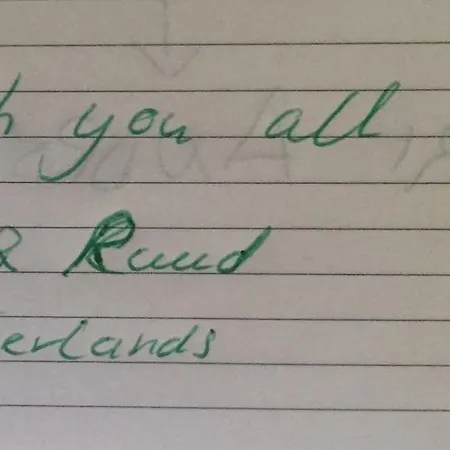 h you all
& Ruud
erlands